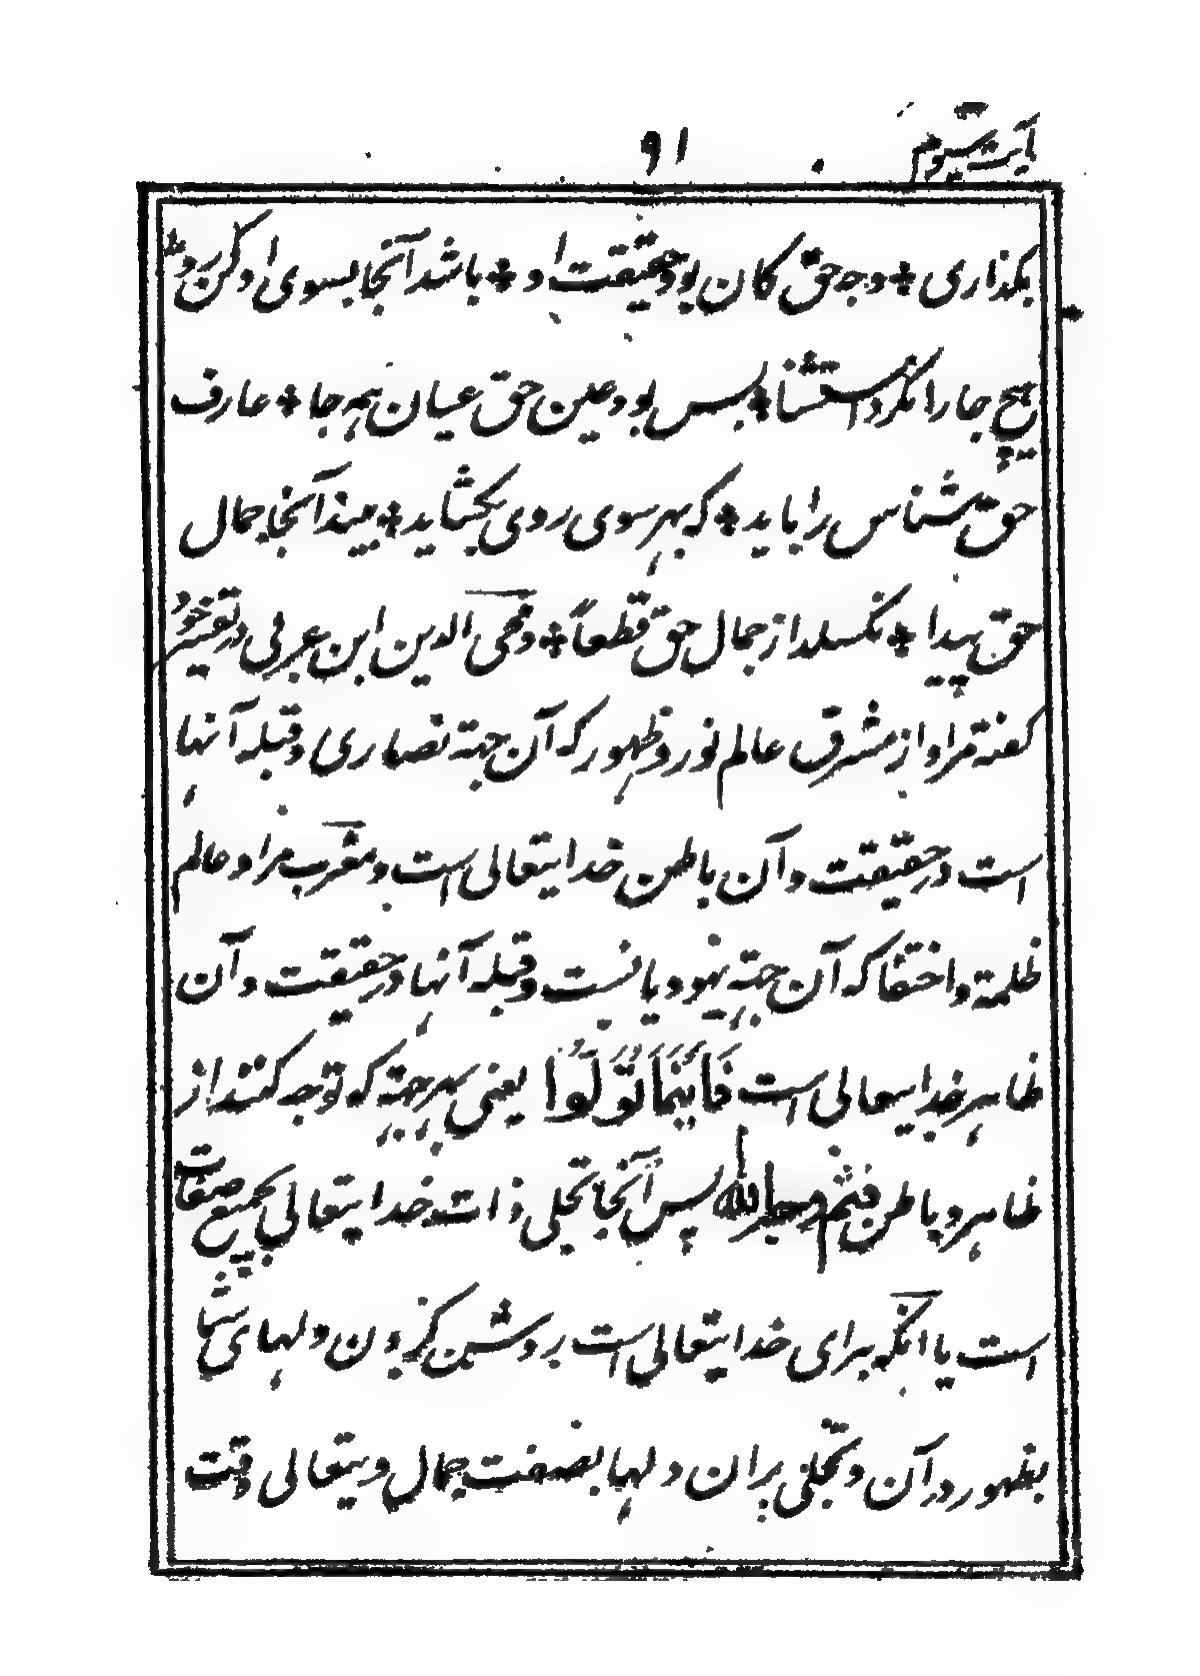 آیت سیوم
۹۱
بگذاری * وجه حق کان بود حقیقت او * باشد آنجا بسوی او کن رو *
هیچ جا را نکرد استثنا * پس بود عین حق عیان همه جا * عارف
حق شناس را باید * که بهر سوی روی بگشاید * بیند آنجا جمال
حق پیدا * نگسلد از جمال حق قطعاً * و محی الدین ابن عربی در تفسیر خود
گفته مراد از مشرق عالم نور و ظهور که آن جهة نصاری و قبله آنها
است در حقیقت و آن باطن خدایتعالی است و مغرب مراد عالم
ظلمة و اختفا که آن جهة یهود یانست و قبله آنها در حقیقت و آن
ظاهر خدایتعالی است فَاَیْنَمَا تُوَلُّوا یعنی بهر جهة که توجه کنند از
ظاهر و باطن فثم وجه الله پس آنجا تجلی ذات خدایتعالی بجمیع صفات
است یا انکه برای خدایتعالی است روشن کردن دلهای شما
بظهور در آن و تجلی بران دلها بصفت جمال ویتعالی وقت